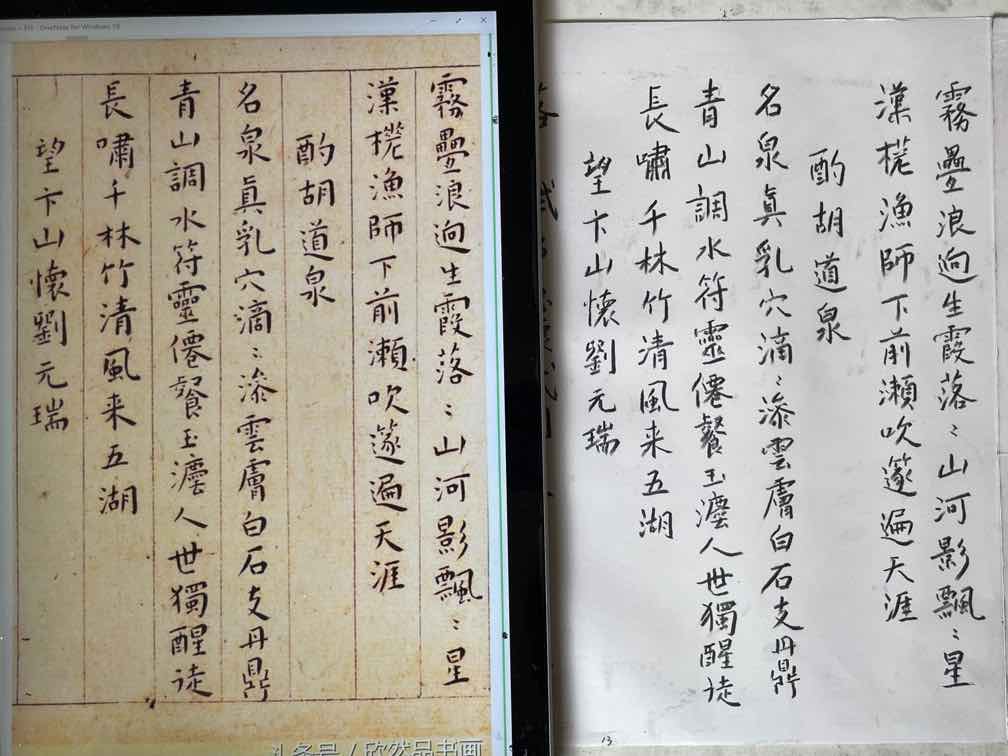 OneNote for Windows 10
霧疊浪逈生霞落〻山河影飄〻星
漢漁師下前瀨吹篴遍天涯
酌胡道泉
名泉眞乳穴滴〻滲雲膚白石支丹鼎
青山調水符靈僊餐玉人世獨醒徒
長嘯千林竹清風来五湖
望卞山懷劉元瑞
头条号 / 欣然品书画
霧疊浪逈生霞落〻山河影飄〻星
漢漁師下前瀨吹篴遍天涯
酌胡道泉
名泉眞乳穴滴〻滲雲膚白石支丹鼎
青山調水符靈僊餐玉人世獨醒徒
長嘯千林竹清風来五湖
望卞山懷劉元瑞
13